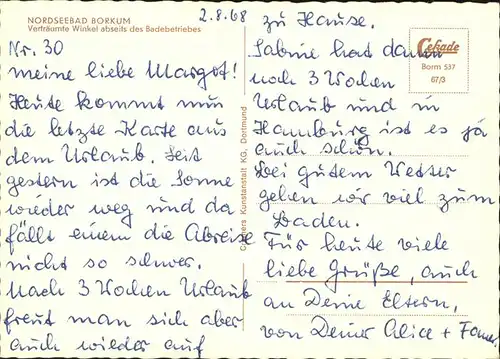 NORDSEEBAD BORKUM
Verträumte Winkel abseits des Badebetriebes
2.8.68
Nr. 30
meine liebe Margot!
Heute kommt nun
die letzte Karte aus
dem Urlaub. Seit
gestern ist die Sonne
wieder weg und da
fällt einem die Abreise
nicht so schwer.
Nach 3 Wochen Urlaub
freut man sich aber
auch wieder auf
zu Hause.
Sabine hat dann
noch 3 Wochen
Urlaub und in
Hamburg ist es ja
auch schön.
Bei gutem Wetter
gehen wir viel zum
Baden.
Für heute viele
liebe Grüße, auch
an Deine Eltern,
von Deiner Alice + Fam
Cekade
Borm 537
67/3
Kunstanstalt KG, Dortmund